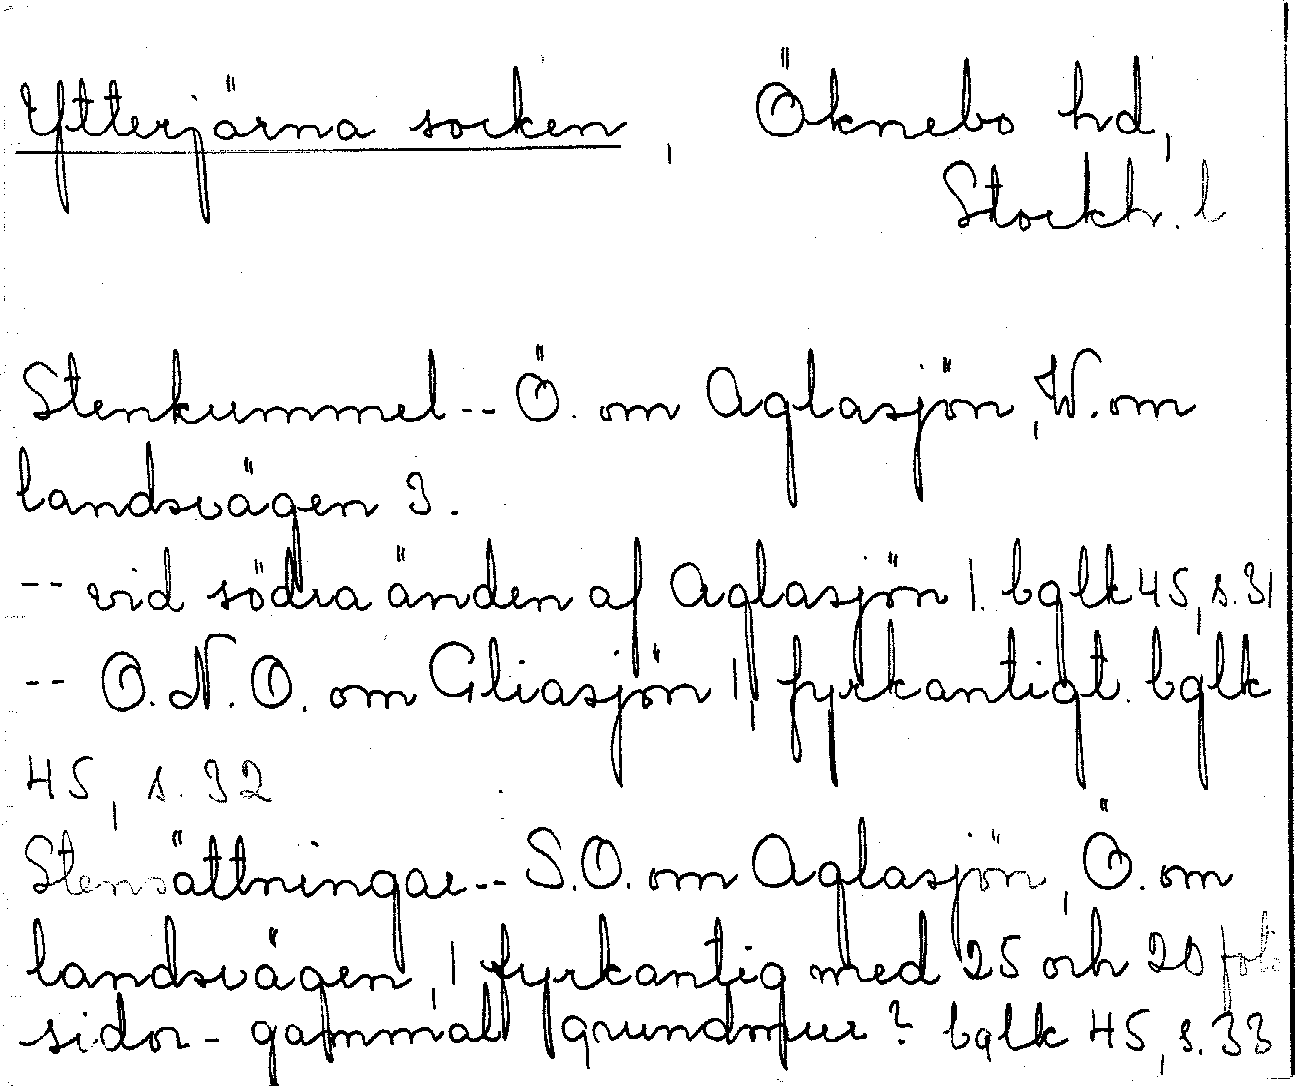 Ytterjärna socken, Öknebo hd,
Stockh. l
Stenkummel -- Ö. om Aglasjön, W. om
landsvägen 3.
-- vid södra änden af Aglasjön 1. bglk 45, s. 31
-- O.N.O. om Gliasjön 1, fyrkantigt. bglk
45, s. 32
Stensättningar -- S.O. om Aglasjön, Ö. om
landsvägen, 1 fyrkantig med 25 och 20 fots
sidor - gammal grundmur? bglk 45, s. 33